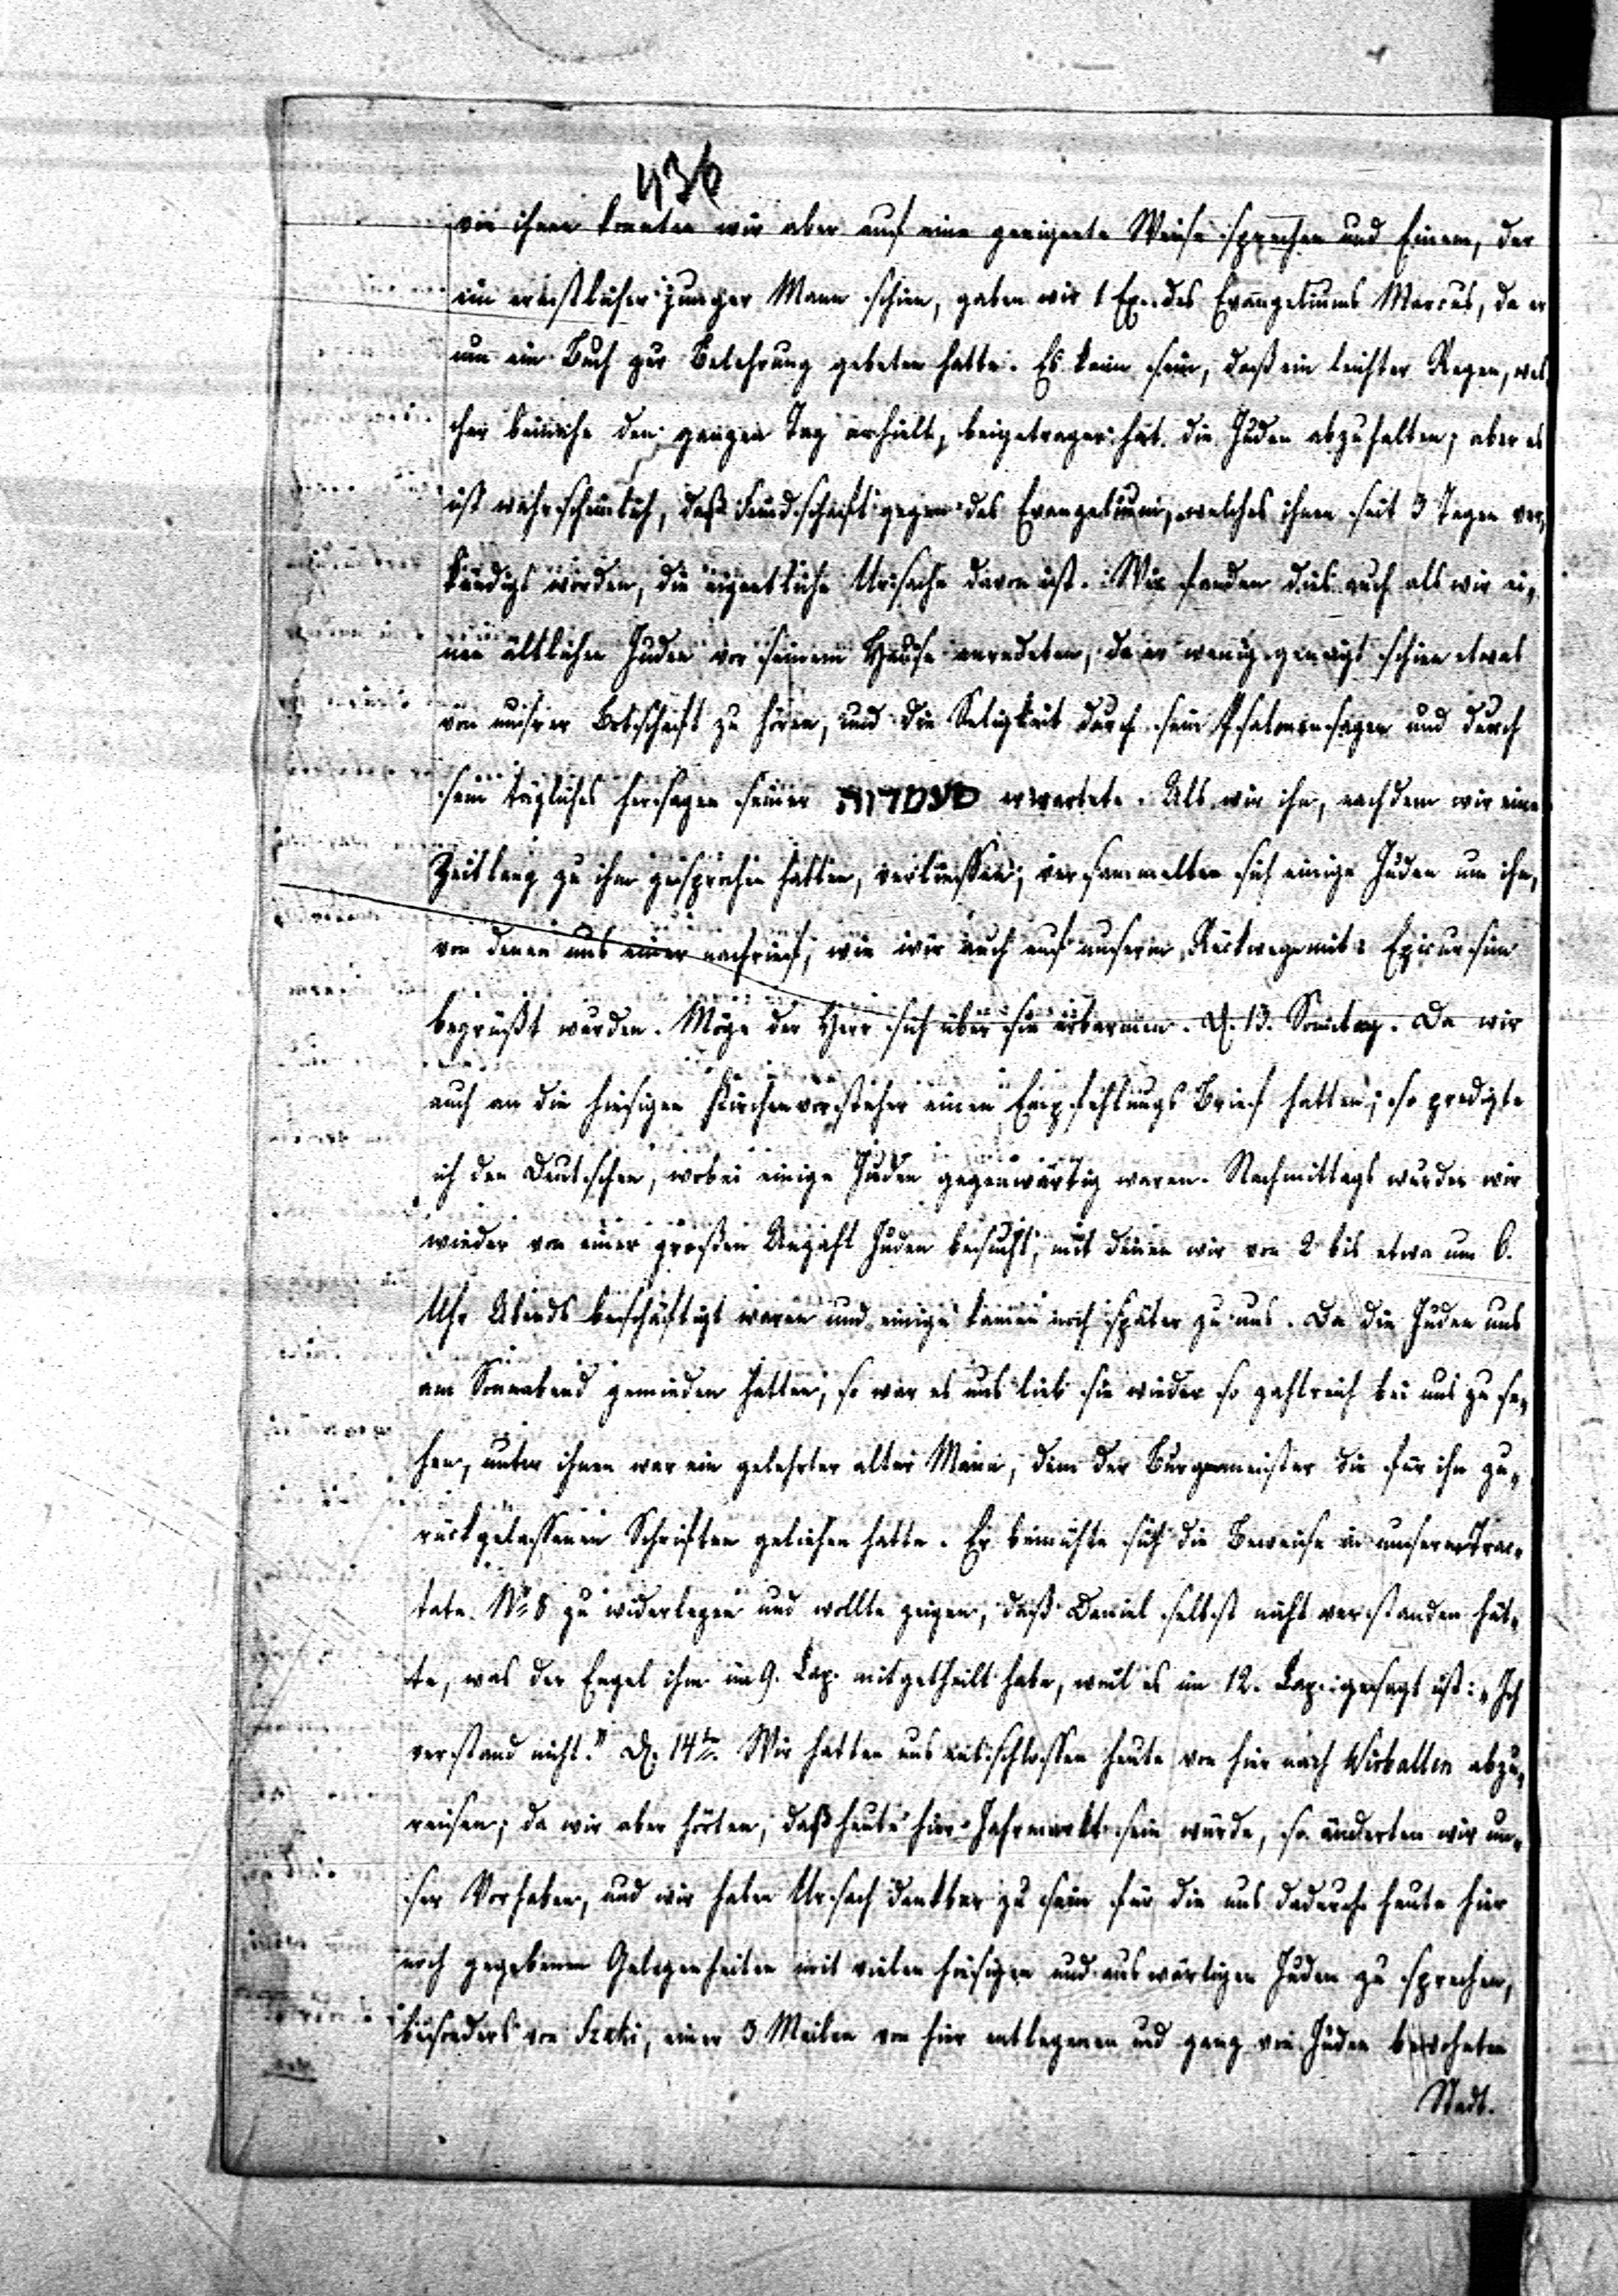 436
von ihnen konnten wir aber auf eine geeignete Weise sprechen und Einem, der
ein ernstlicher junger Mann schien, gaben wir 1 Ex. des Evangeliums Marcus, da er
um ein Buch zur Belehrung gebeten hatte. Es kann sein, daß ein leichter Regen, wel
cher beinahe den ganzen Tag anhielt, beigetragen hat die Juden abzuhalten; aber es
ist wahrscheinlich, daß Feindschaft gegen das Evangelium, welches ihnen seit 3 Tagen ver„
kündigt worden, die eigentliche Ursache davon ist. Wir fanden dies auch als wir ei„
nen ältlichen Juden vor seinem Hause anredeten, da er wenig geneigt schien etwas
von unsrer Botschaft zu hören, und die Seligkeit durch sein Psalmensagen und durch
sein tägliches hersagen seiner erwartete. Als wir ihn, nachdem wir eine
Zeitlang zu ihm gesprochen hatten, verließen, versammelten sich einige Juden um ihn,
von denen uns einer nachrief, wie wir auch auf unserm Rückwege mit: Epicursim
begrüßt wurden. Möge der Herr sich über sie erbarmen. d. 13. Sonntag. Da wir
auch an die hiesigen Kirchenvorsteher einen Empfehlungs Brief hatten; so predigte
ich den Deutschen, wobei einige Juden gegenwärtig waren. Nachmittags wurden wir
wieder von einer großen Anzahl Juden besucht, mit denen wir von 2 bis etwa um 6.
Uhr Abends beschäftigt waren und einige kamen noch später zu uns. Da die Juden uns
am Sonnabend gemieden hatten, so war es uns lieb sie wieder so zahlreich bei uns zu se„
hen, unter ihnen war ein gelehrter alter Mann, dem der Burgermeister die für ihn zu„
rückgelassenen Schriften geliehen hatte. Er bemühte sich die Beweise in unserm Trac„
tate No 8 zu widerlegen und wollte zeigen, daß Daniel selbst nicht verstanden hät„
te, was der Engel ihm im 9. Cap. mitgetheilt habe, weil es im 12. Cap. gesagt ist: „Ich
verstand nicht." d. 14ten. Wir hatten uns entschlossen heute von hier nach Wirballen abzu„
reisen; da wir aber hörten, daß heute hier Jahrmarkt sein würde, so änderten wir un„
ser Vorhaben, und wir haben Ursach dankbar zu sein für die uns dadurch heute hier
noch gegebenen Gelegenheiten mit vielen hiesigen und auswärtigen Juden zu sprechen,
besonders von Szaki, einer 3 Meilen von hier entlegenen und ganz von Juden bewohnten
Stadt.